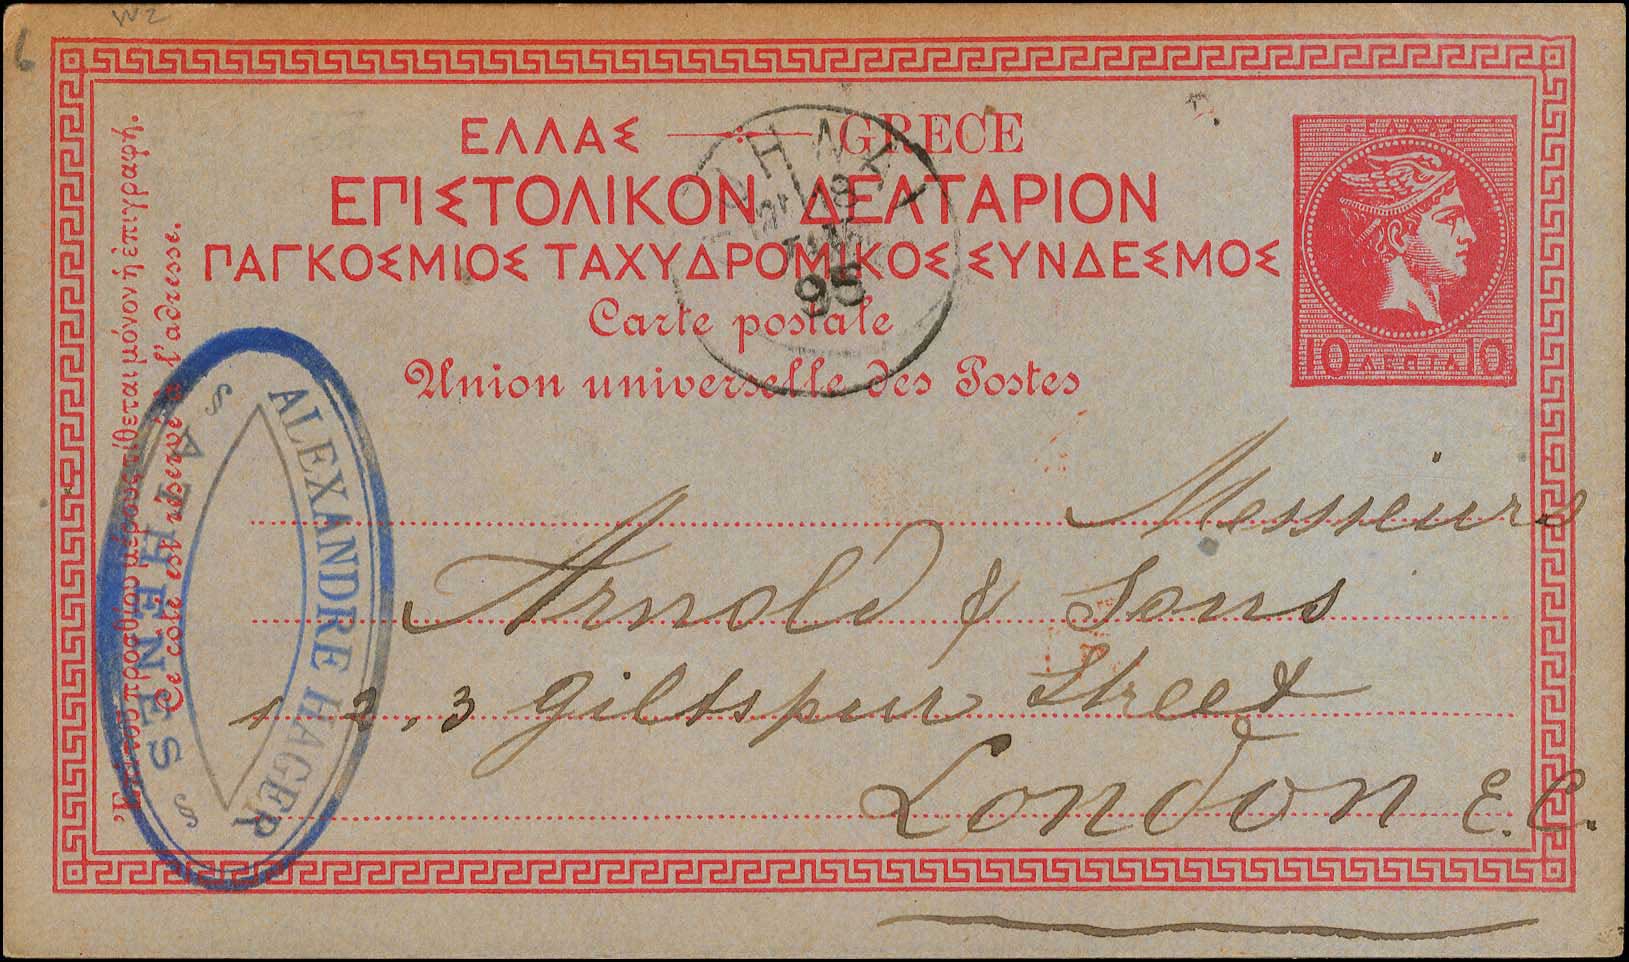 ΕΛΛΑΣ GRECE
ΕΠΙΣΤΟΛΙΚΟΝ ΔΕΛΤΑΡΙΟΝ
ΠΑΓΚΟΣΜΙΟΣ ΤΑΧΥΔΡΟΜΙΚΟΣ ΣΥΝΔΕΣΜΟΣ
Carte postale
Union universelle des Postes
95
10 ΛΕΠΤΑ 10
Ἐπὶ τοῦ προσθίου μέρους τίθεται μόνον ἡ ἐπιγραφή.
Ce coté est réservé à l'adresse.
ALEXANDRE HAGER
ATHENES
Messieurs
Arnold & Sons
1 2, 3 Giltspur Street
London E.C.